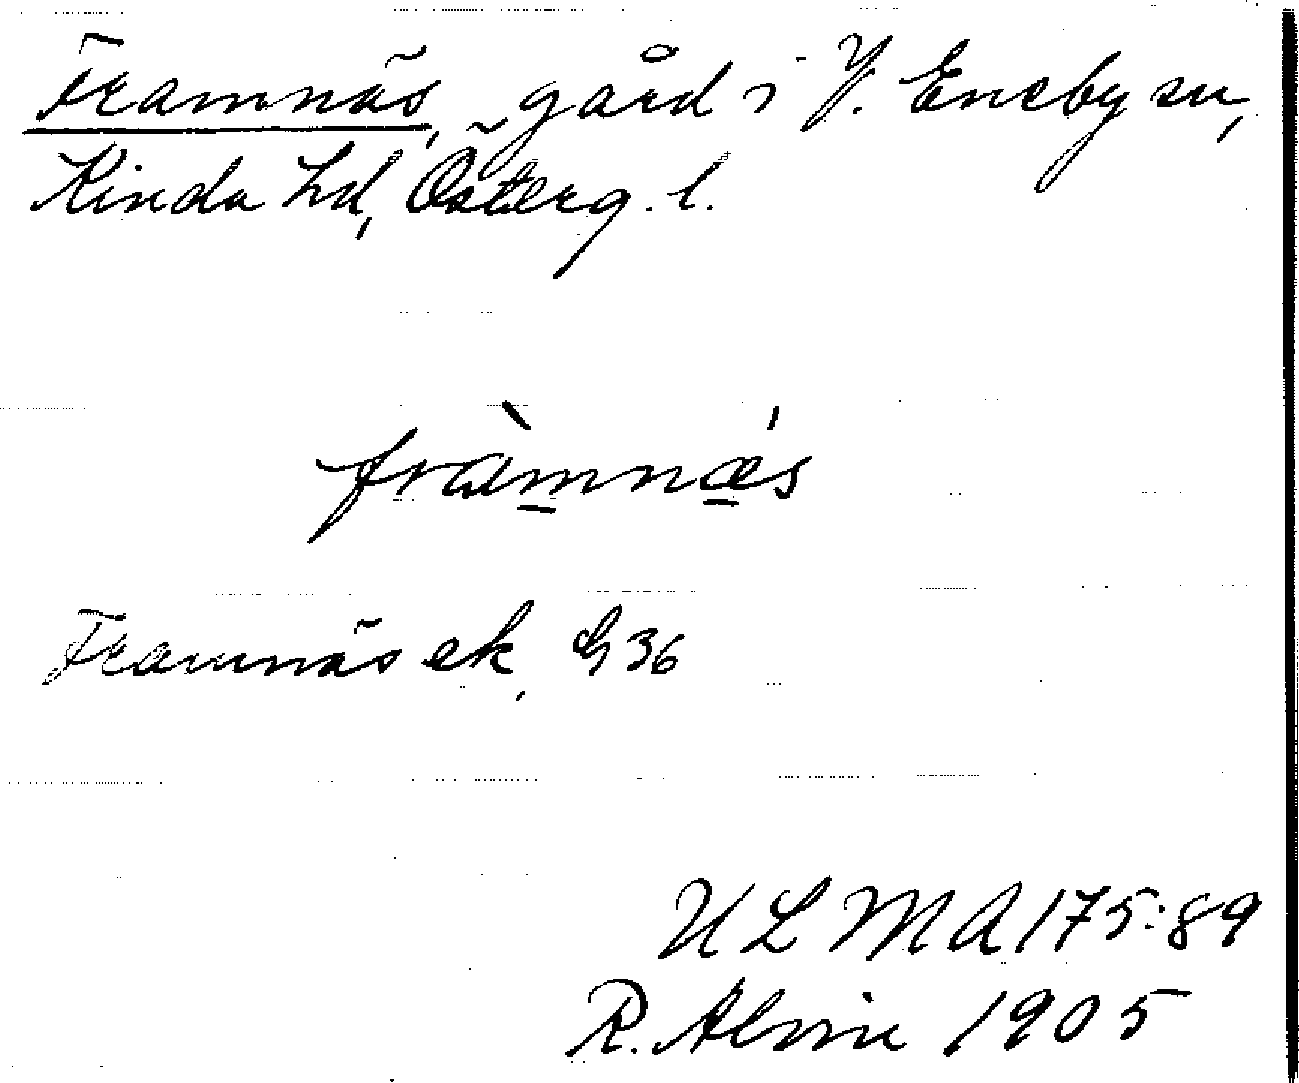 Framnäs, gård i Y. Eneby sn,
Kinda hd, Österg. l.
fràmnǽs
Framnäs ek, G 36
ULMA 175:89
R. Alvin 1905